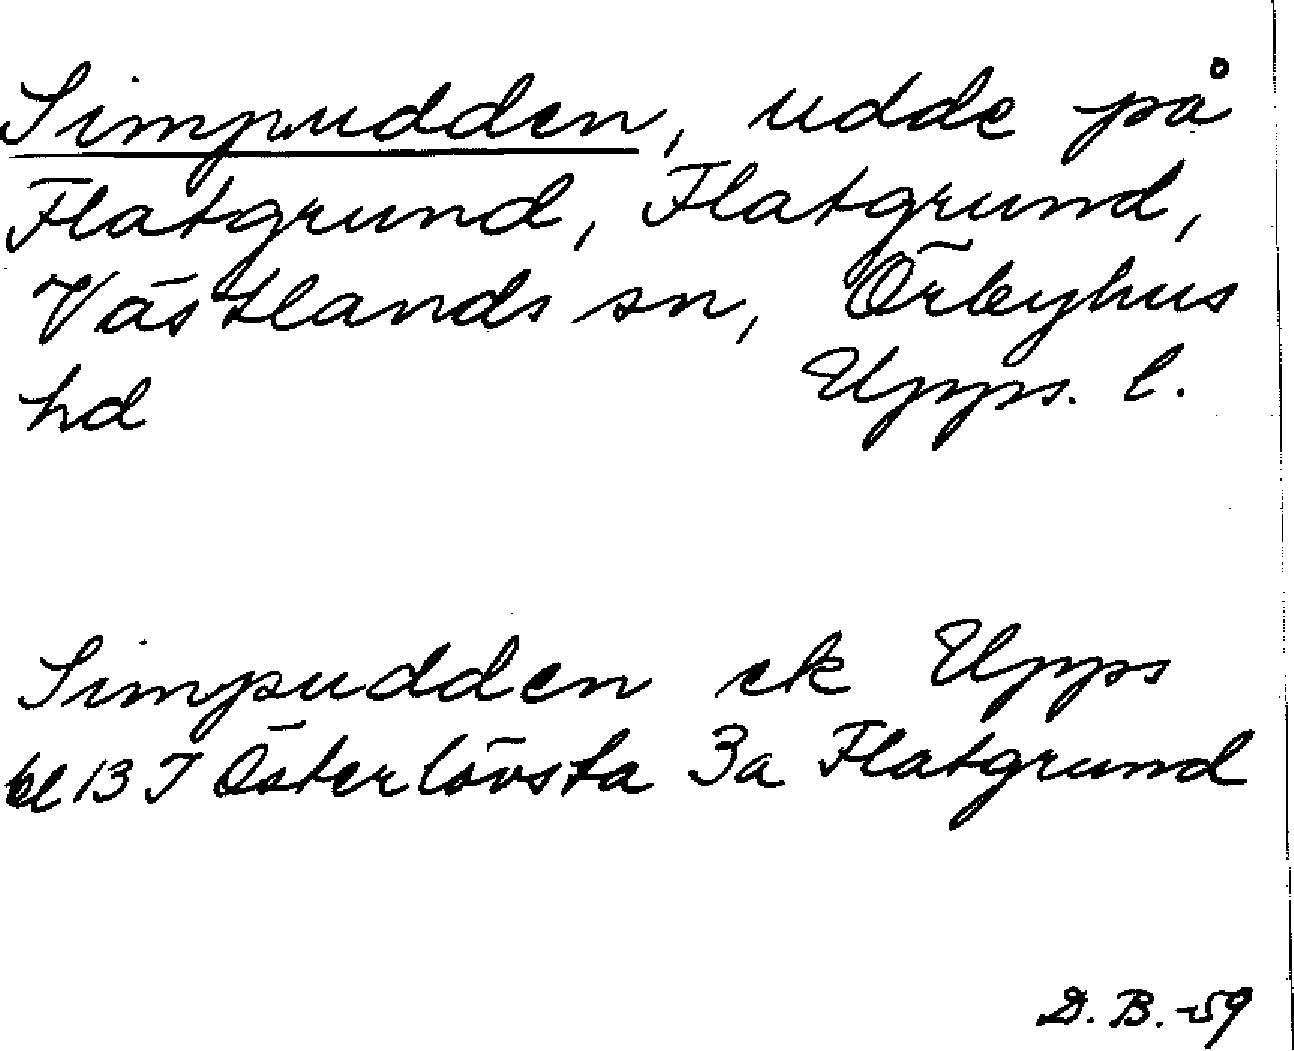 Simpudden, udde på
Flatgrund, Flatgrund,
Västlands sn, Örbyhus
hd Upps. l.
Simpudden ek Upps
bl 13 J Österlövsta 3a Flatgrund
D. B. -59